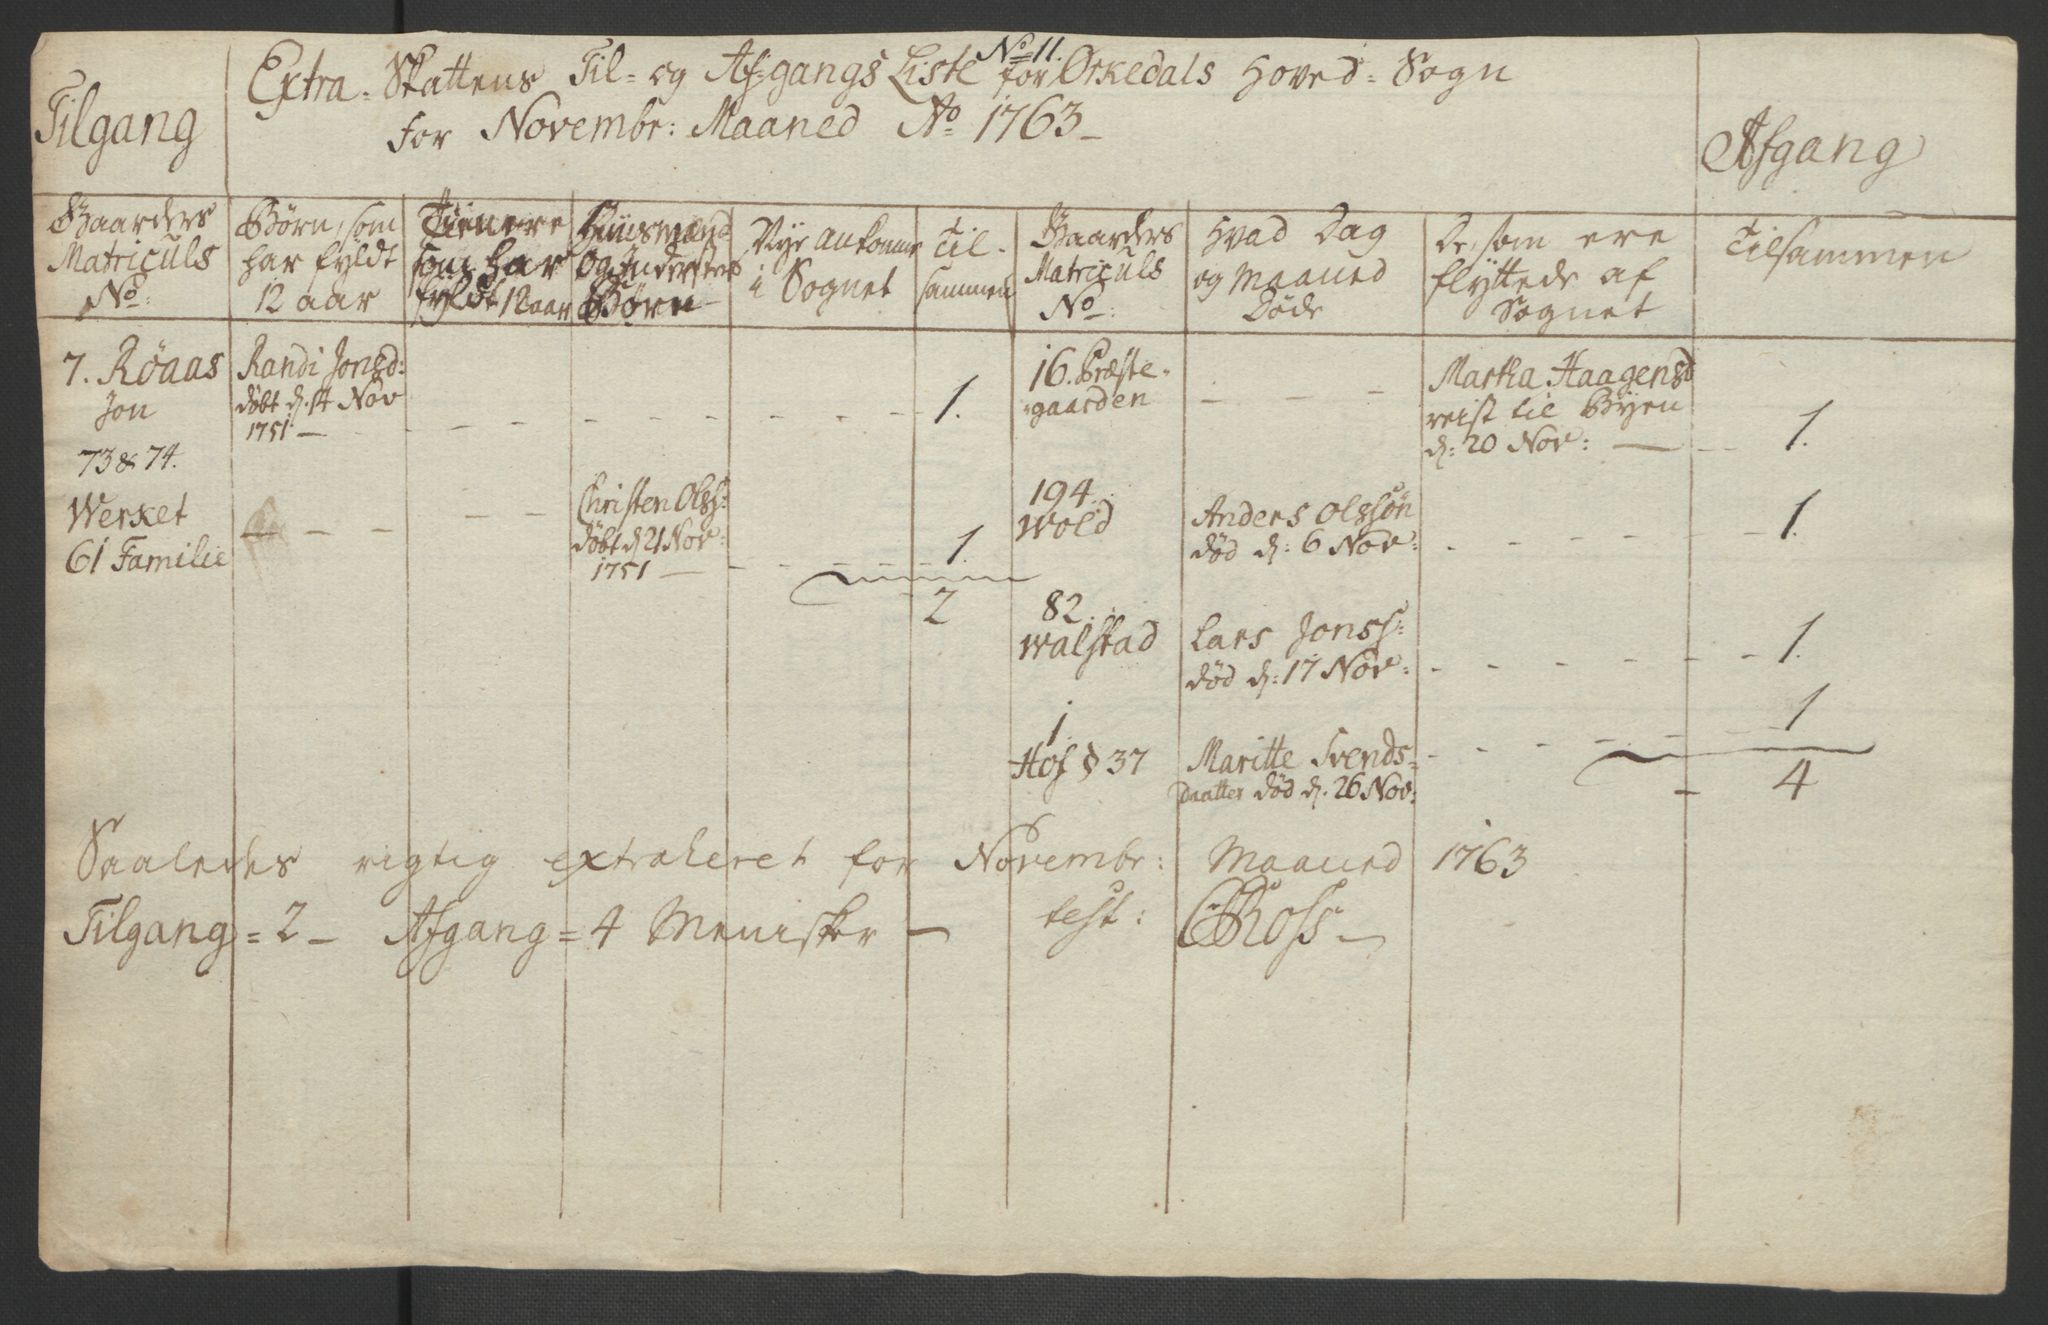 No 11.
Tilgang
Extra-Skattens Til- og Af-gangs Liste for Orkedals Hoved-Sogn
for Novembr: Maaned Ao 1763
Afgang
Gaarders Matriculs No:
Børn, som har fyldt 12 aar
Tienere som har fyldt 12 aar
Huusmænd og Inderster Børn
Nye ankomne i Sognet
Til-sammen
Gaarders Matriculs No:
Hvad Dag og Maaned Døde
De, som ere flyttede af Sognet
Tilsammen
7. Röaas Jon
Randi Jonsd:
døbt d. 14 Nov
1751
1.
16. Præste-
-gaarden
Martha Haagensd
reist til Byen
d: 20 Nov:
1.
73 & 74.
Werket
61 Familie
Christen Olss:
døbt d 21 Nov:
1751
1.
2
194.
Wold
Anders Olssøn
død d: 6 Nov:
1.
82.
Walstad
Lars Jonss:
død d: 17 Nov:
1.
1.
Hof § 37
Maritte Svends-
Daatter død d. 26 Nov:
1
4
Saaledes rigtig extraheret for Novembr: Maaned 1763
Tilgang = 2 – Afgang = 4 Menisker –
test: Ross